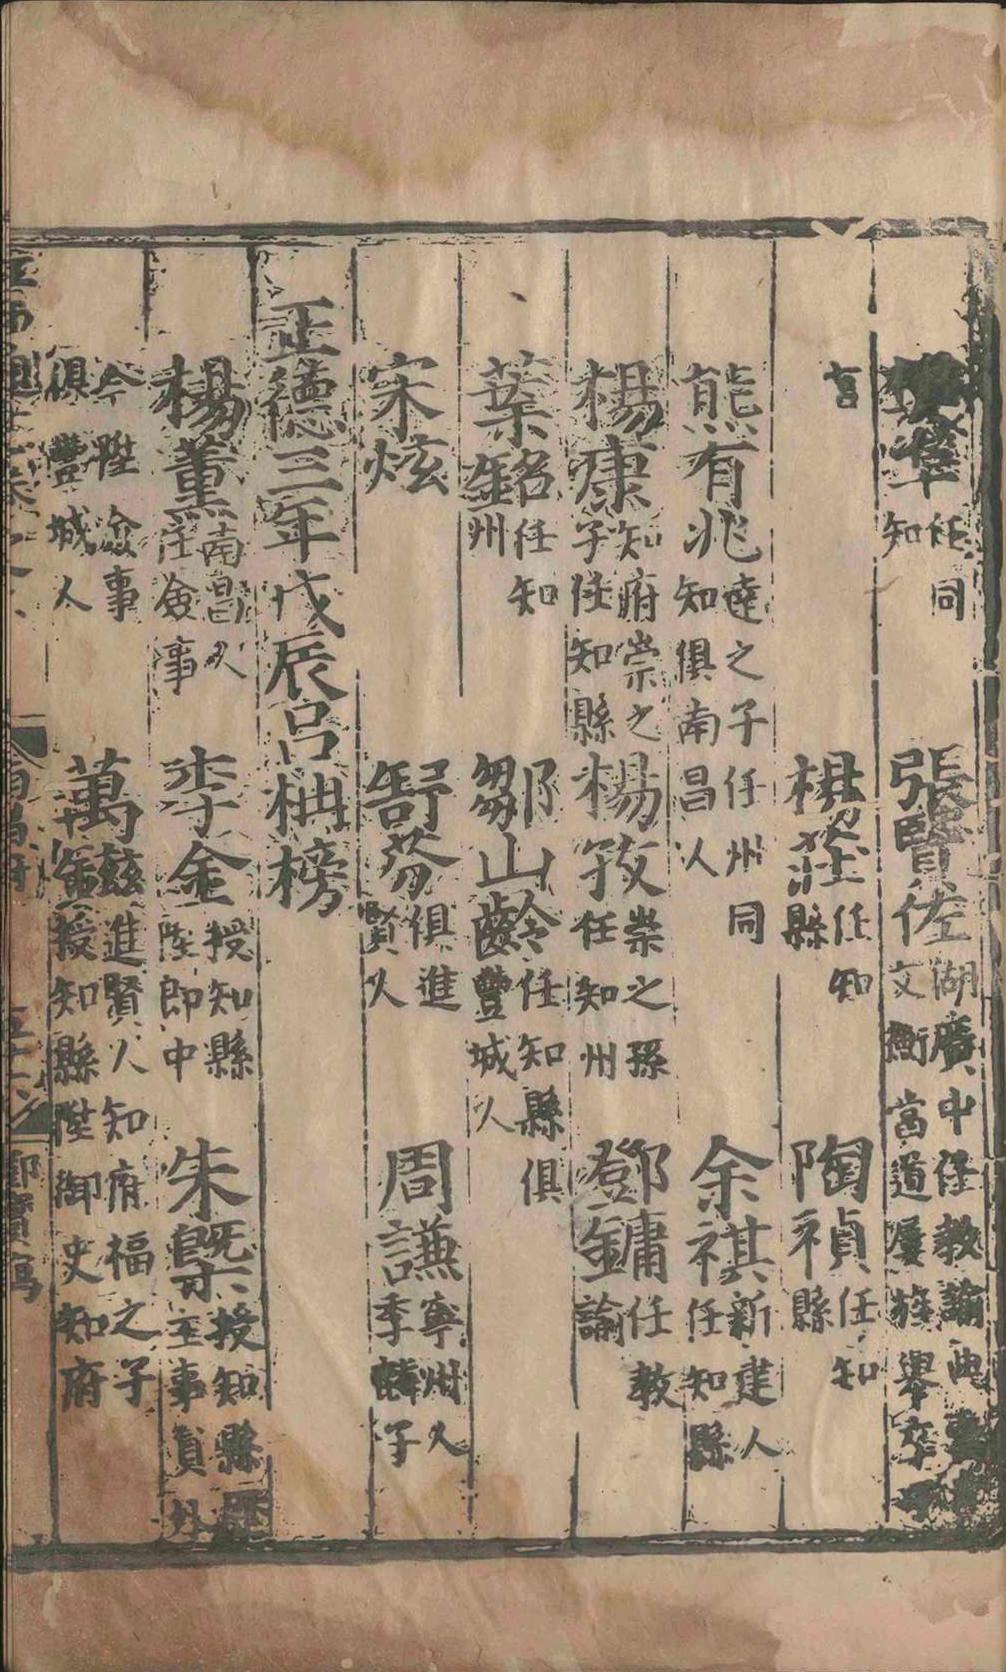 任同知 張賢佐 湖廣中任教諭典 文衡當道屢旌舉卒
言 楊荘 任知縣 陶禎 任知縣
熊有兆 達之子任州同知俱南昌人 余祺 新建人任知縣
楊康 知府崇之子任知縣 楊孜 崇之孫任知州 鄧鏞 任教諭
葉銘 任知州 鄒山齡 任知縣俱豐城人
宋炫 舒芬 俱進賢人 周謙 寧州人季麟子
正德三年戊辰呂柟榜
楊薰 南昌人任僉事 李金 授知縣陞郎中 朱槩 授知縣主事員外
今陞僉事俱豐城人 萬鎡 進賢人知府福之子授知縣陞御史知府